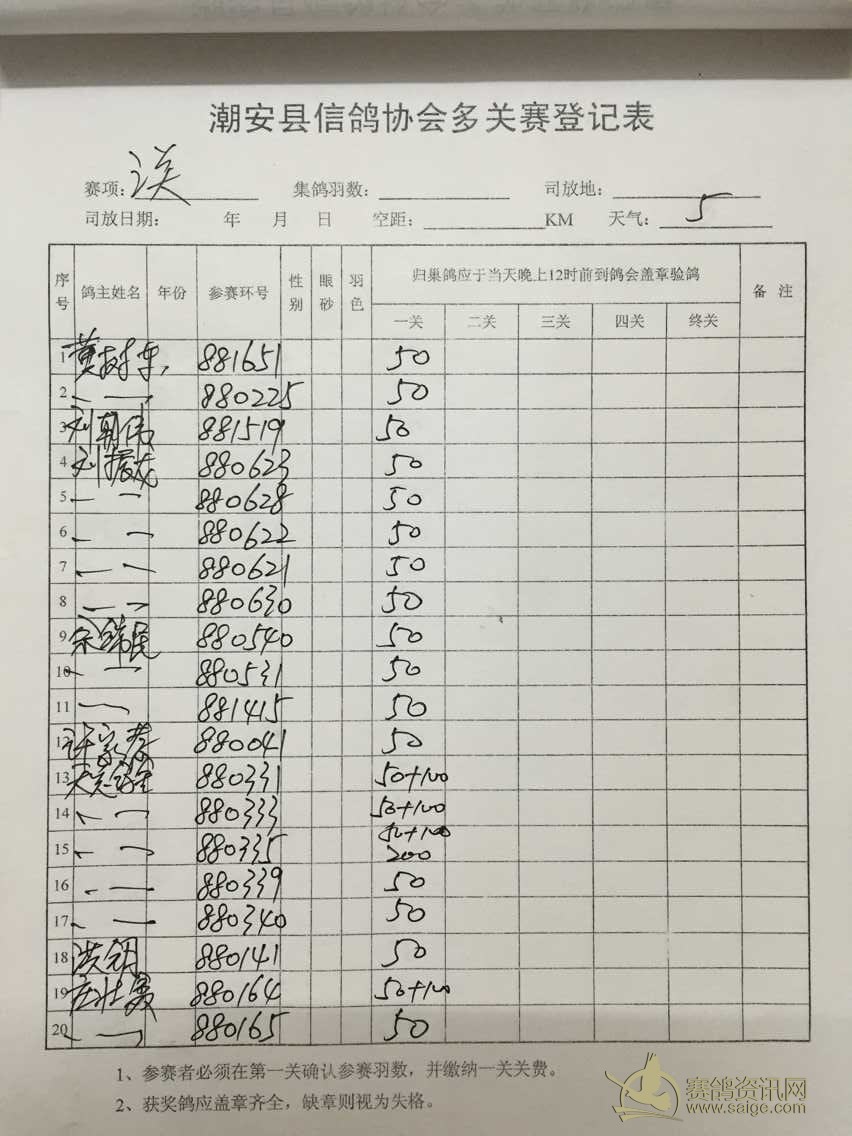 潮安县信鸽协会多关赛登记表
赛项: 集鸽羽数: 司放地:
司放日期: 年 月 日 空距: KM 天气: 5
序号 鸽主姓名 年份 参赛环号 性别 眼砂 羽色 归巢鸽应于当天晚上12时前到鸽会盖章验鸽 备 注
一关 二关 三关 四关 终关
1 881651 50
2 880225 50
3 刘朝伟 881519 50
4 880623 50
5 880628 50
6 880622 50
7 880621 50
8 880630 50
9 880540 50
10 880531 50
11 881415 50
12 880041 50
13 880331 50+100
14 880333 50+100
15 880335 50+100 200
16 880339 50
17 880340 50
18 880141 50
19 880164 50+100
20 880165 50
1、参赛者必须在第一关确认参赛羽数，并缴纳一关关费。
2、获奖鸽应盖章齐全，缺章则视为失格。
赛鸽资讯网
www.saige.com